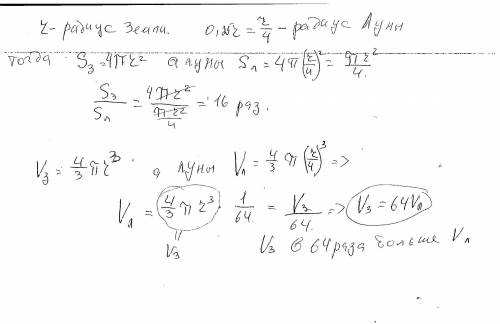 r - радиус Земли. 0,25r = r/4 - радиус Луны
тогда Sз = 4πr² а луны Sл = 4π(r/4)² = πr²/4.
Sз/Sл = 4πr²/(πr²/4) = 16 раз.
Vз = 4/3 πr³ а луны Vл = 4/3 π(r/4)³ =>
Vл = 4/3 πr³ · 1/64. = Vз/64. => Vз = 64Vл
Vз Vз в 64 раза больше Vл